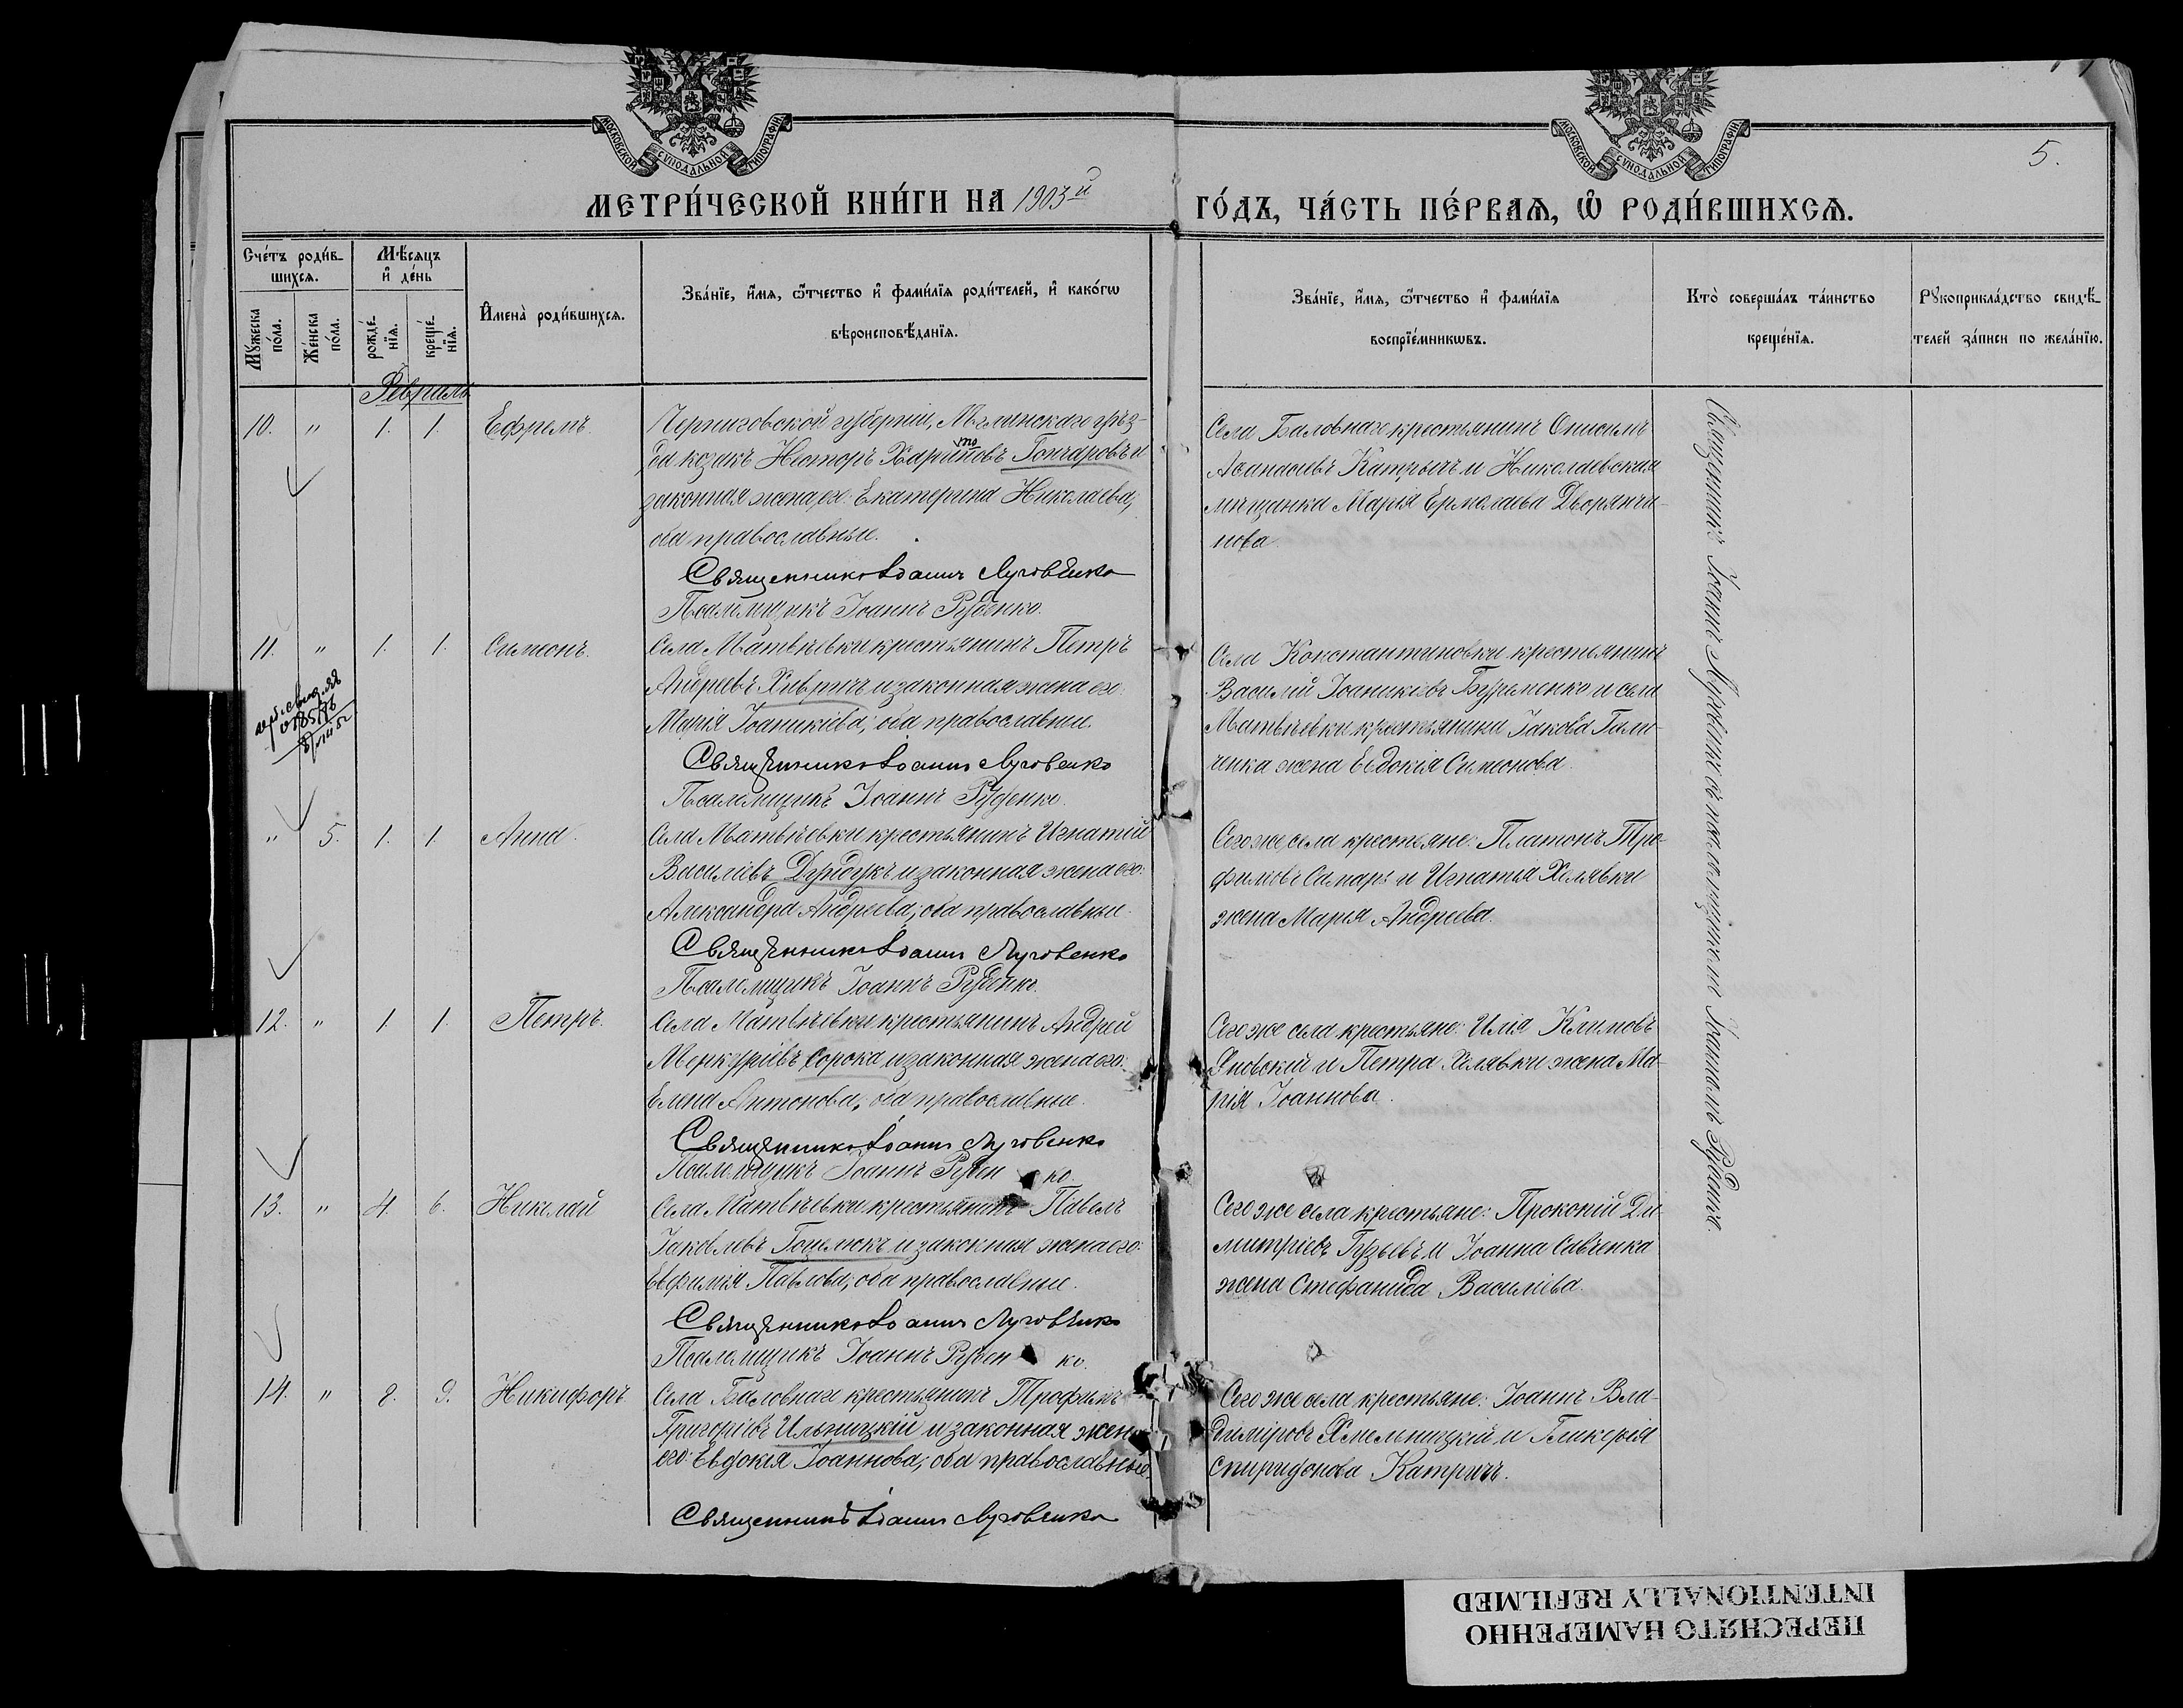 МОСКОВСКОЙ СУНОДАЛЬНОЙ ТИПОГРАФІИ
МОСКОВСКОЙ СУНОДАЛЬНОЙ ТИПОГРАФІИ
5.
МЕТРИ́ЧЕСКОЙ КНИ́ГИ НА 1903й
ГО́ДЪ, ЧА́СТЬ ПЕ́РВАѦ, Ѽ РОДИ́ВШИХСѦ.
Сче́тъ роди́в-
шихсѧ.
Мꙋ́жеска по́ла.
Же́нска по́ла.
Мѣ́сяцъ
и҆ де́нь
рожде́-
нїѧ.
креще́-
нїѧ.
И҆мена̀ роди́вшихсѧ.
Зва́нїе, и҆́мѧ, ѻ҆́тчество и҆ фами́лїѧ роди́телей, и҆ како́гѡ
вѣроисповѣ́данїѧ.
Зва́нїе, и҆́мѧ, ѻ҆́тчество и҆ фами́лїѧ
воспрїе́мникѡвъ.
Кто̀ соверша́лъ та́инство
креще́нїѧ.
Рꙋкоприкла́дство свидѣ́-
телей за́писи по жела́нїю.
Февраль
10. " 1. 1. Ефремъ.
Черниговской губерніи, Мглинскаго уѣз-
да козакъ Несторъ Харитоновъ Гончаровъ и
законная жена его: Екатерина Николаева,
оба православные.
Священникъ Іоаннъ Луговенко
Псаломщикъ Іоаннъ Руденко.
Села Баловнаго крестьянинъ Онисимъ
Аѳанасіевъ Катричъ и Николаевская
мѣщанка Марія Ермолаева Дворянчи-
нова.
11. " 1. 1. Симеонъ.
Села Матвѣевки крестьянинъ Петръ
Андреевъ Хивричъ и законная жена его:
Марія Іоаникіева, оба православные.
Священникъ Іоаннъ Луговенко
Псаломщикъ Іоаннъ Руденко.
Села Константиновки крестьянинъ
Василій Іоаникіевъ Бурьменко и села
Матвѣевки крестьянина Іакова Гали-
ченка жена Евдокія Симеонова.
" 5. 1. 1. Анна.
Села Матвѣевки крестьянинъ Игнатій
Василіевъ Дундукъ и законная жена его:
Александра Андреева, оба православные.
Священникъ Іоаннъ Луговенко
Псаломщикъ Іоаннъ Руденко.
Сего же села крестьяне: Платонъ Тро-
фимовъ Самарь и Игнатія Халявки
жена Марья Андреева.
12. " 1. 1. Петръ.
Села Матвѣевки крестьянинъ Андрей
Меркуріевъ Сорока и законная жена его:
Елена Антонова, оба православные.
Священникъ Іоаннъ Луговенко
Псаломщикъ Іоаннъ Руден ко.
Сего же села крестьяне: Илія Климовъ
Яновскій и Петра Халявки жена Ма-
рія Іоаннова.
13. " 4. 6. Николай
Села Матвѣевки крестьянинъ Павелъ
Іаковлевъ Гоцелюкъ и законная жена его:
Евфимія Павлова, оба православные.
Священникъ Іоаннъ Луговенко
Псаломщикъ Іоаннъ Руден ко.
Сего же села крестьяне: Прокопій Ди-
митріевъ Гузьевъ и Іоанна Савченка
жена Стефанида Василіева.
14. " 8. 9. Никифоръ
Села Баловнаго крестьянинъ Трофимъ
Григоріевъ Ильницкій и законная жена
его: Евдокія Іоаннова, оба православные.
Священникъ Іоаннъ Луговенко
Сего же села крестьяне: Іоаннъ Вла-
диміровъ Хмельницкій и Гликерія
Спиридонова Катричъ.
Священникъ Іоаннъ Луговенко съ псаломщикомъ Іоанномъ Руденко.
ПЕРЕСНЯТО НАМЕРЕННО
INTENTIONALLY REFILMED